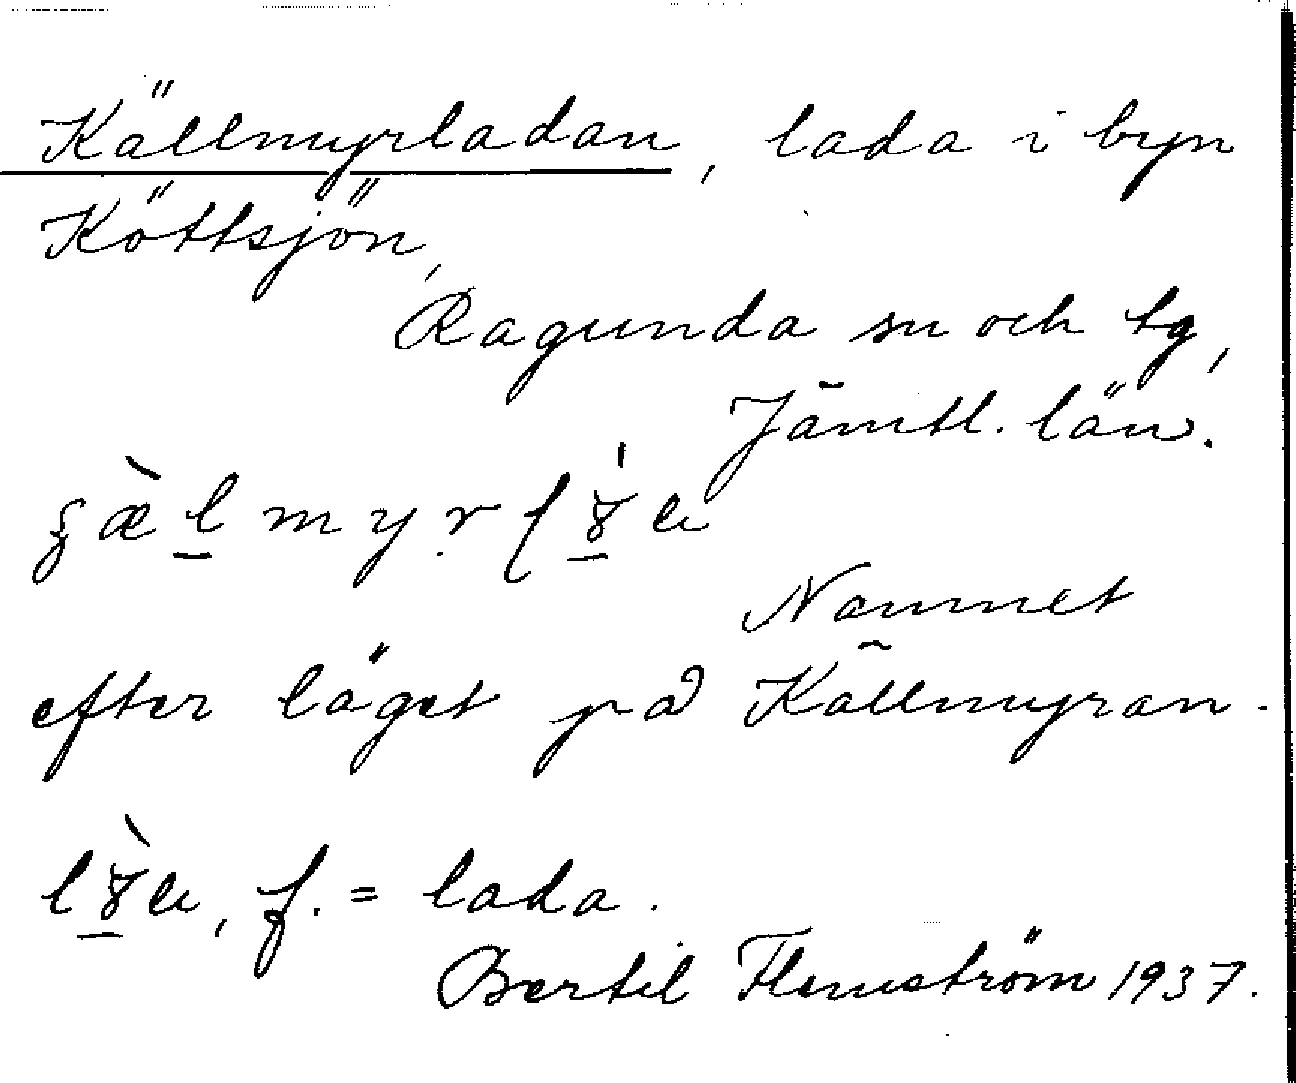 Källmyrladan, lada i byn
Köttsjön,
Ragunda sn och tg,
Jämtl. län.
Namnet
efter läget på Källmyran.
f. = lada.
Bertil Flemström 1937.